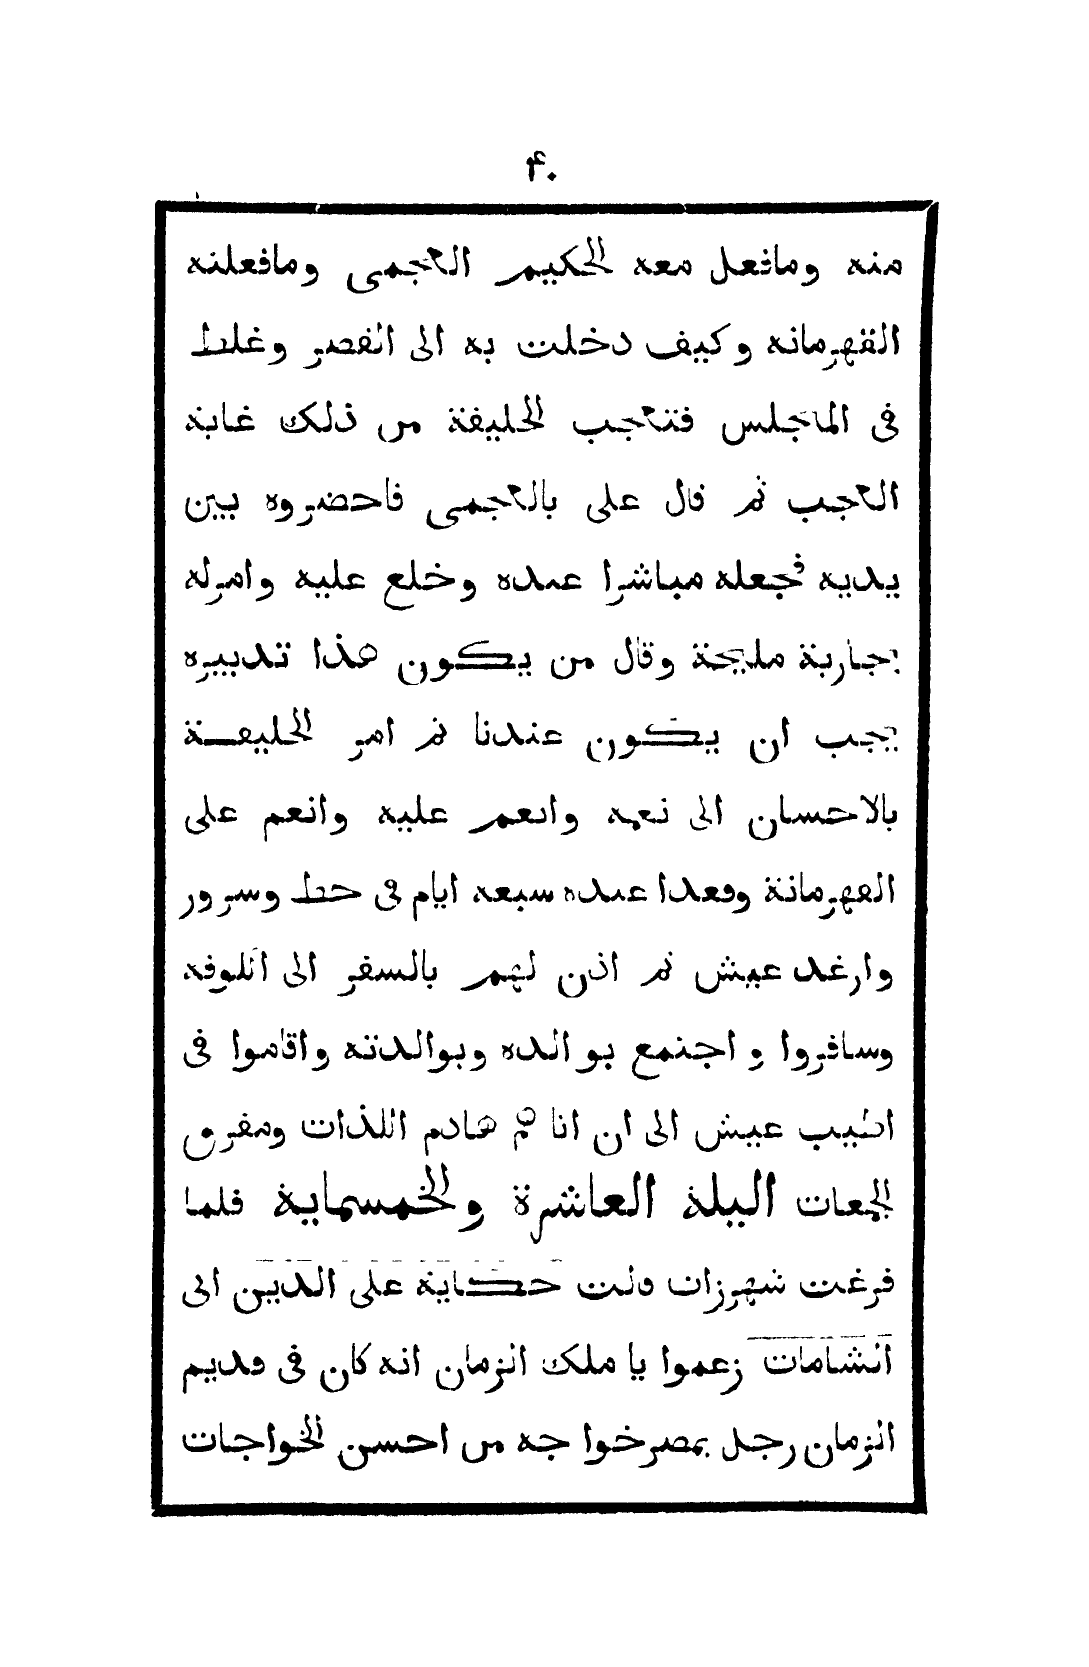 ۴۰
منه ومافعل معه الحكيم العجمى ومافعلته
القهرمانه وكيف دخلت به الى القصر وغلط
فى المجلس فتعجب الخليفة من ذلك غاية
العجب ثم قال على بالعجمى فاحضروه بين
يديه فجعله مباشرا عنده وخلع عليه وامرله
بجارية مليحة وقال من يكون هذا تدبيره
يجب ان يكون عندنا ثم امر الخليفة
بالاحسان الى نعمه وانعم عليه وانعم على
القهرمانة وقعدا عنده سبعه ايام فى حظ وسرور
وارغد عيش ثم اذن لهم بالسفر الى الكوفه
وسافروا و اجتمع بوالده وبوالدته واقاموا فى
اطيب عيش الى ان اتا ثم هادم اللذات ومفرق
الجمعات اليلة العاشرة والخمسماية فلما
فرغت شهرزان قالت حكاية على الدين الى
الشامات زعموا يا ملك الزمان انه كان فى قديم
الزمان رجل بمصر خوا جه من احسن الخواجات